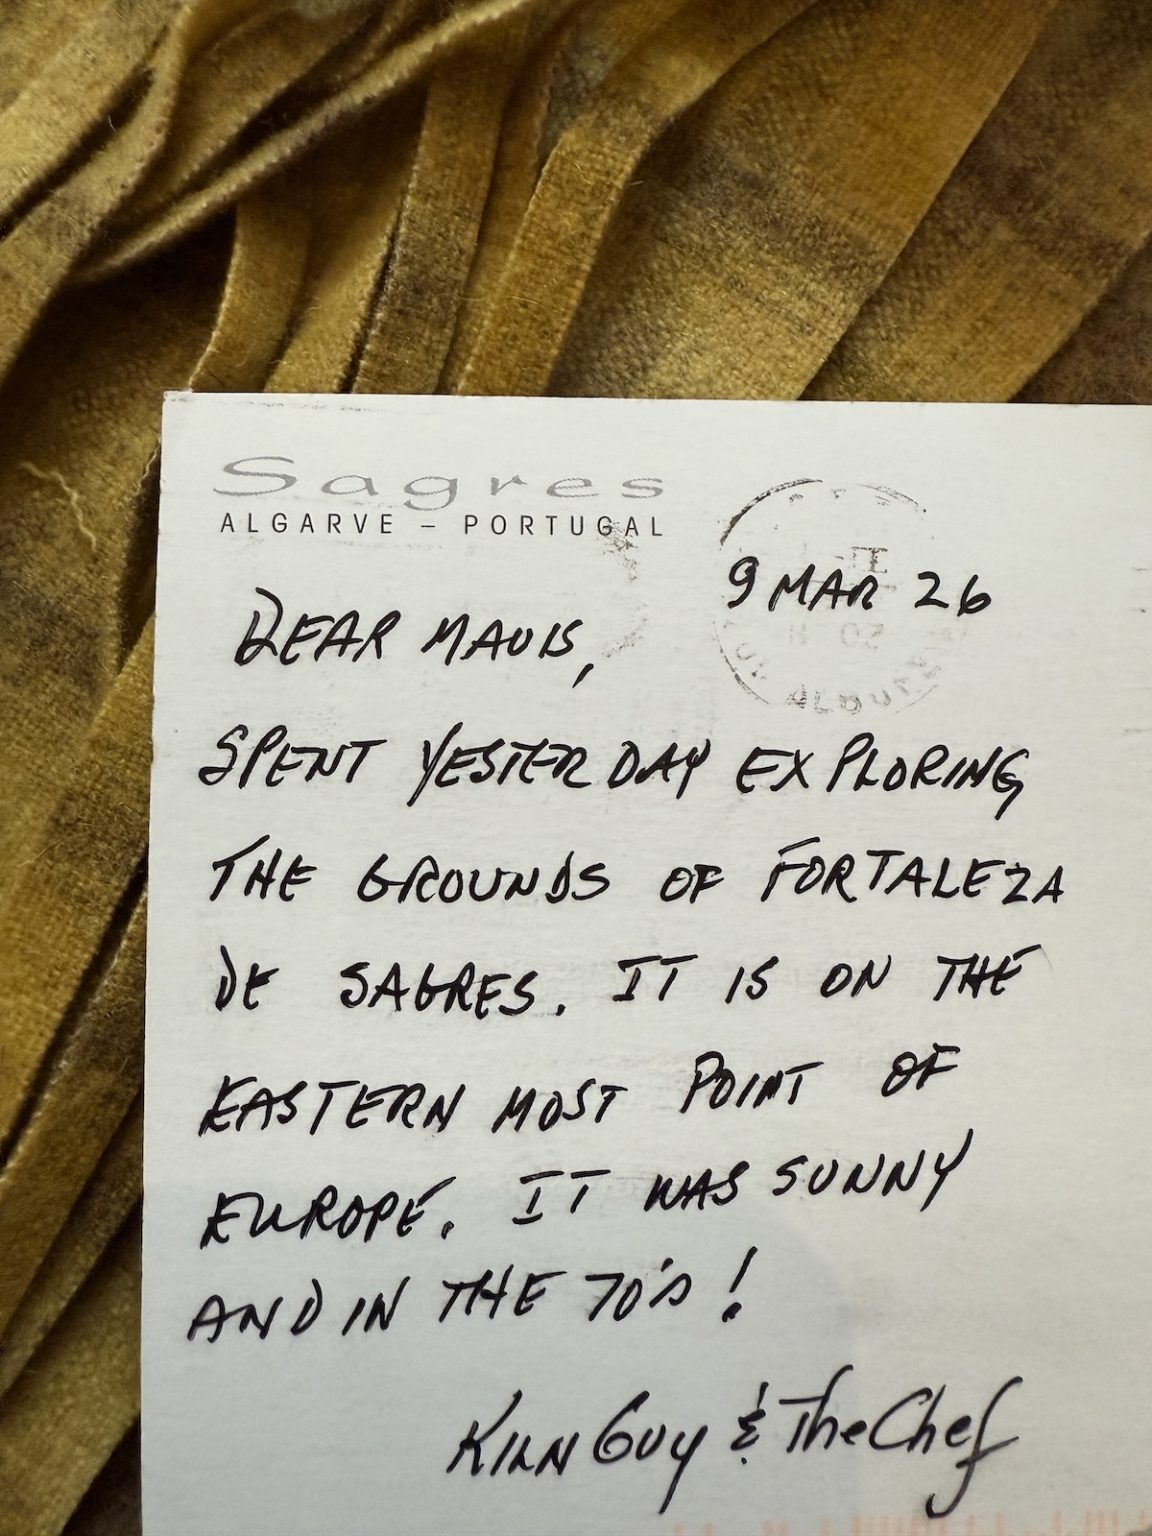 Sagres
ALGARVE – PORTUGAL
9 MAR 26
DEAR MAVIS,
SPENT YESTERDAY EXPLORING
THE GROUNDS OF FORTALEZA
DE SAGRES. IT IS ON THE
EASTERN MOST POINT OF
EUROPE. IT WAS SUNNY
AND IN THE 70'S!
KILN GUY & The Chef